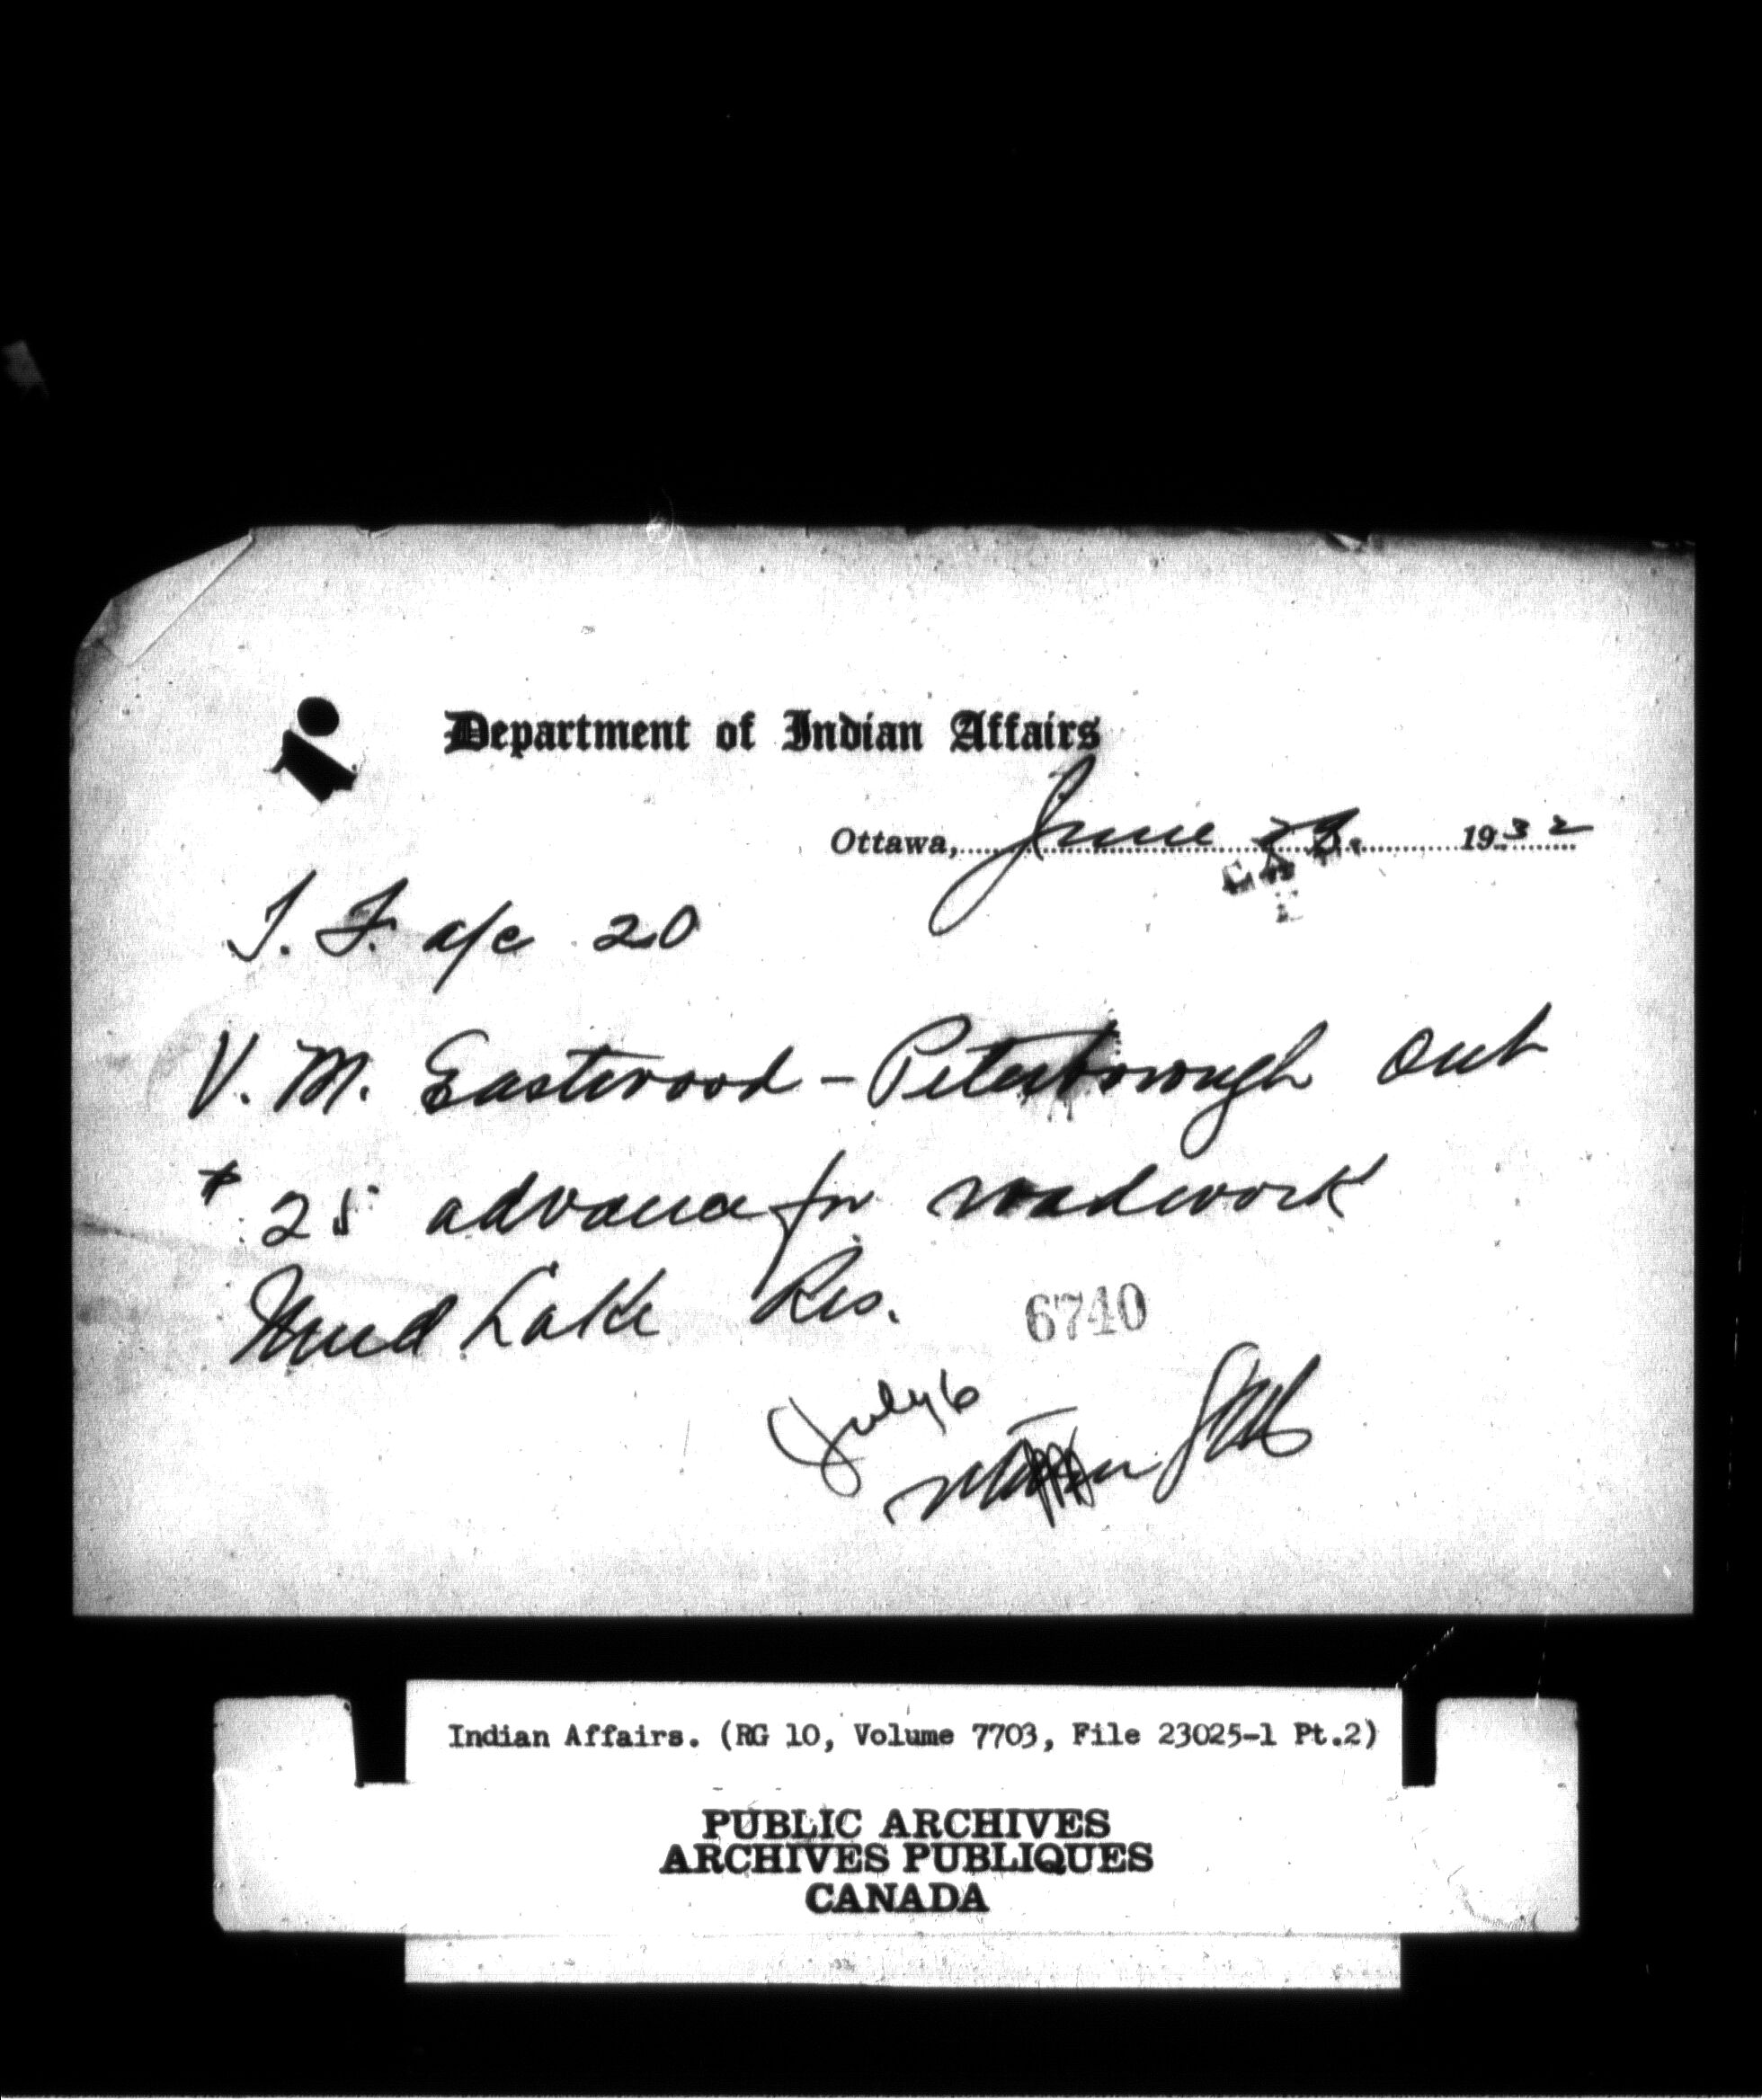 Department of Indian Affairs
Ottawa, June 28. 1932
T. F. a/c 20
V. M. Eastwood - Peterborough Ont
$25 advance for roadwork
Mud Lake Res.
6740
July 6
Indian Affairs. (RG 10, Volume 7703, File 23025-1 Pt.2)
PUBLIC ARCHIVES
ARCHIVES PUBLIQUES
CANADA